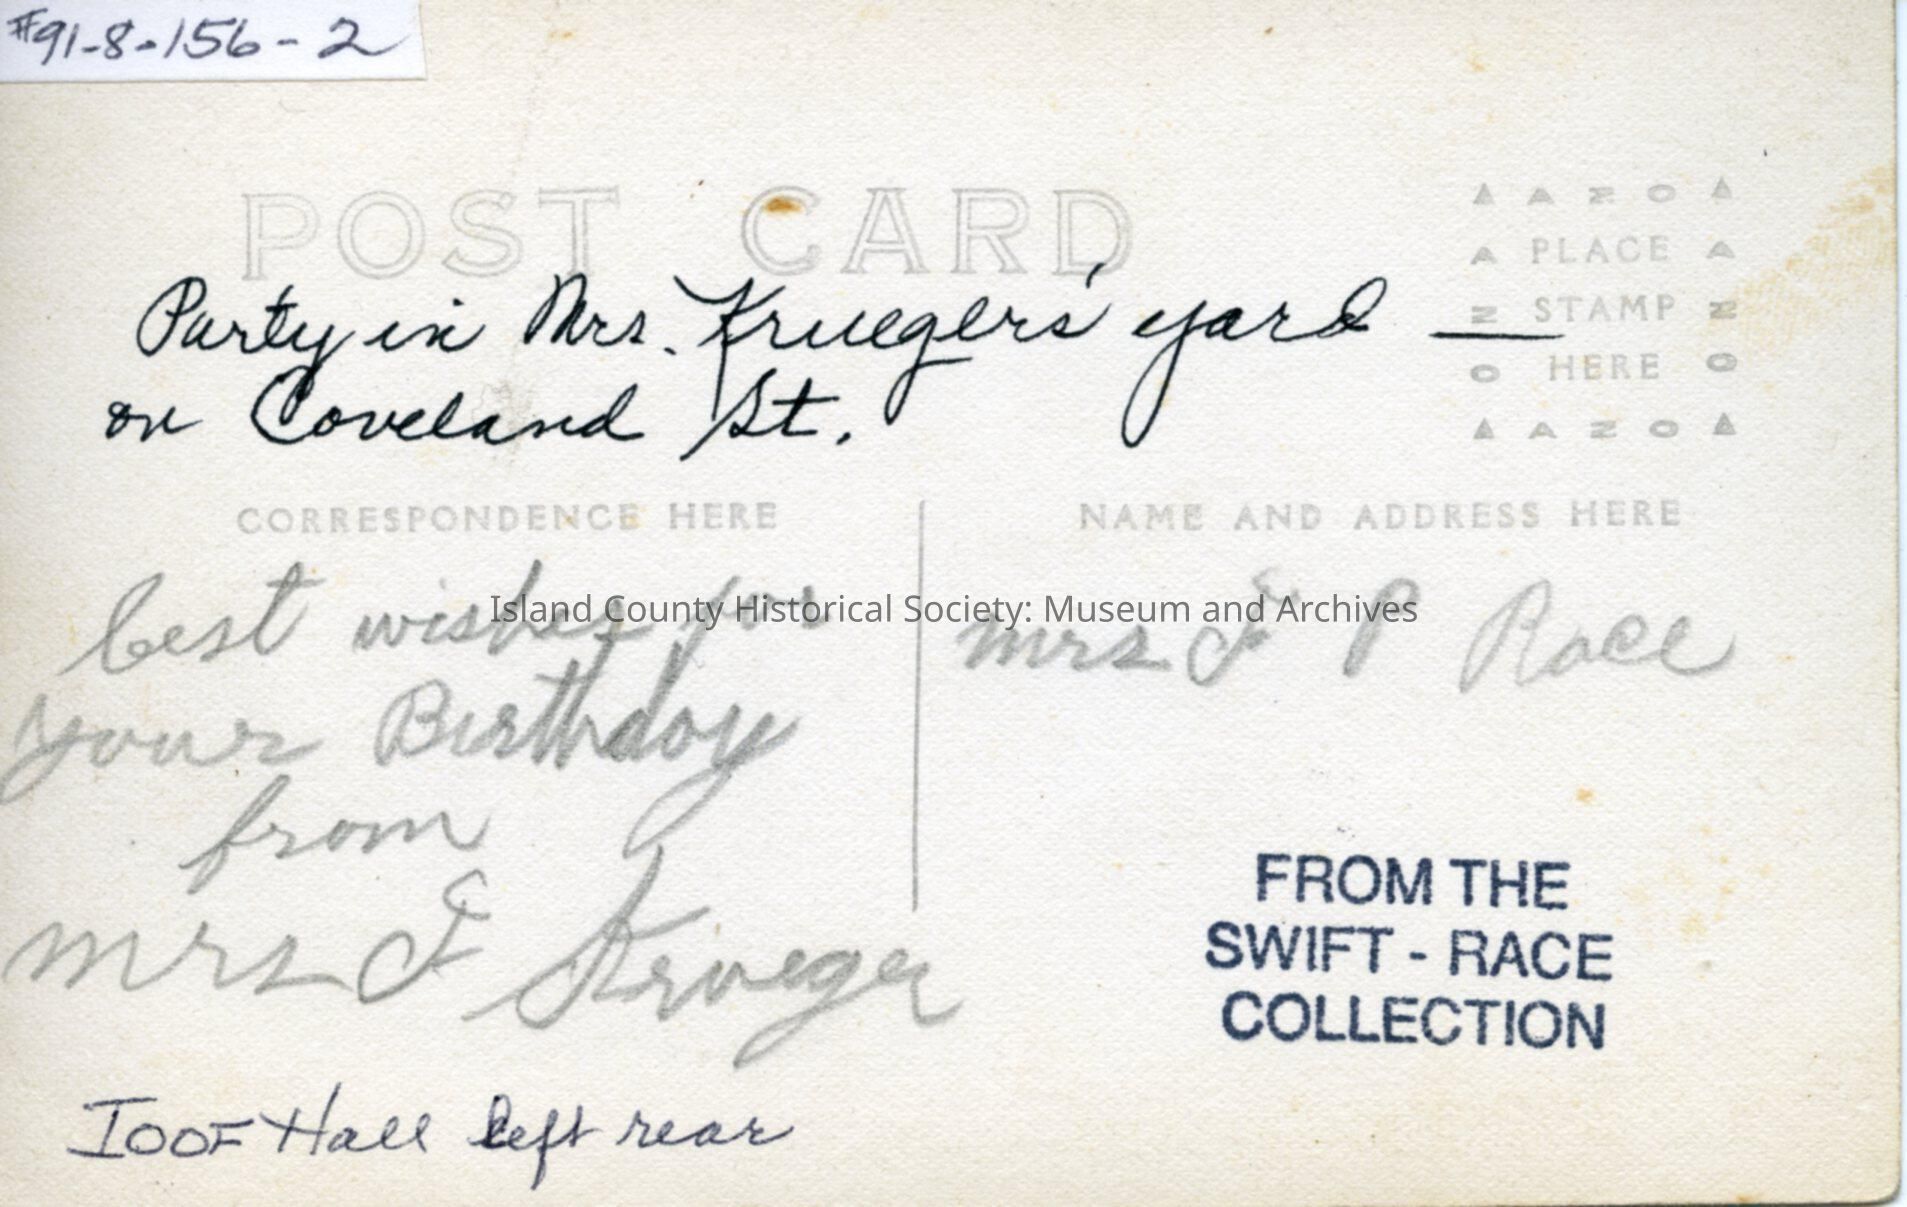 #91-8-156-2
POST CARD
▲ A Z O ▲
A PLACE A
Z STAMP Z
O HERE O
▲ A Z O ▲
Party in Mrs. Kruegers' yard —
on Coveland St.
CORRESPONDENCE HERE
NAME AND ADDRESS HERE
best wishes for
your Birthday
from
mrs J Krueger
Island County Historical Society: Museum and Archives
mrs J P Race
FROM THE
SWIFT - RACE
COLLECTION
IOOF Hall left rear